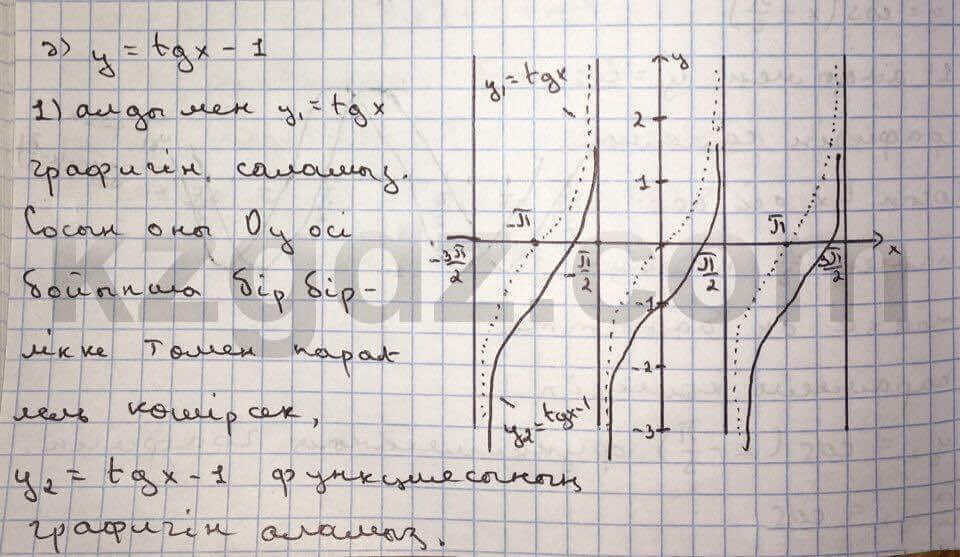 ə) y = tgx - 1
1) алдымен y₁ = tgx
графигін саламыз.
Сосын оны Oy осі
бойынша бір бір-
лікке томен парал
лель көшірсек,
y₂ = tgx - 1 функциясының
графигін аламыз.
y₁ = tgx
y
2
1
-π
π
x
-3π/2
-π/2
π/2
3π/2
-1
-2
y₂ = tgx-1
-3
kzgdz.com